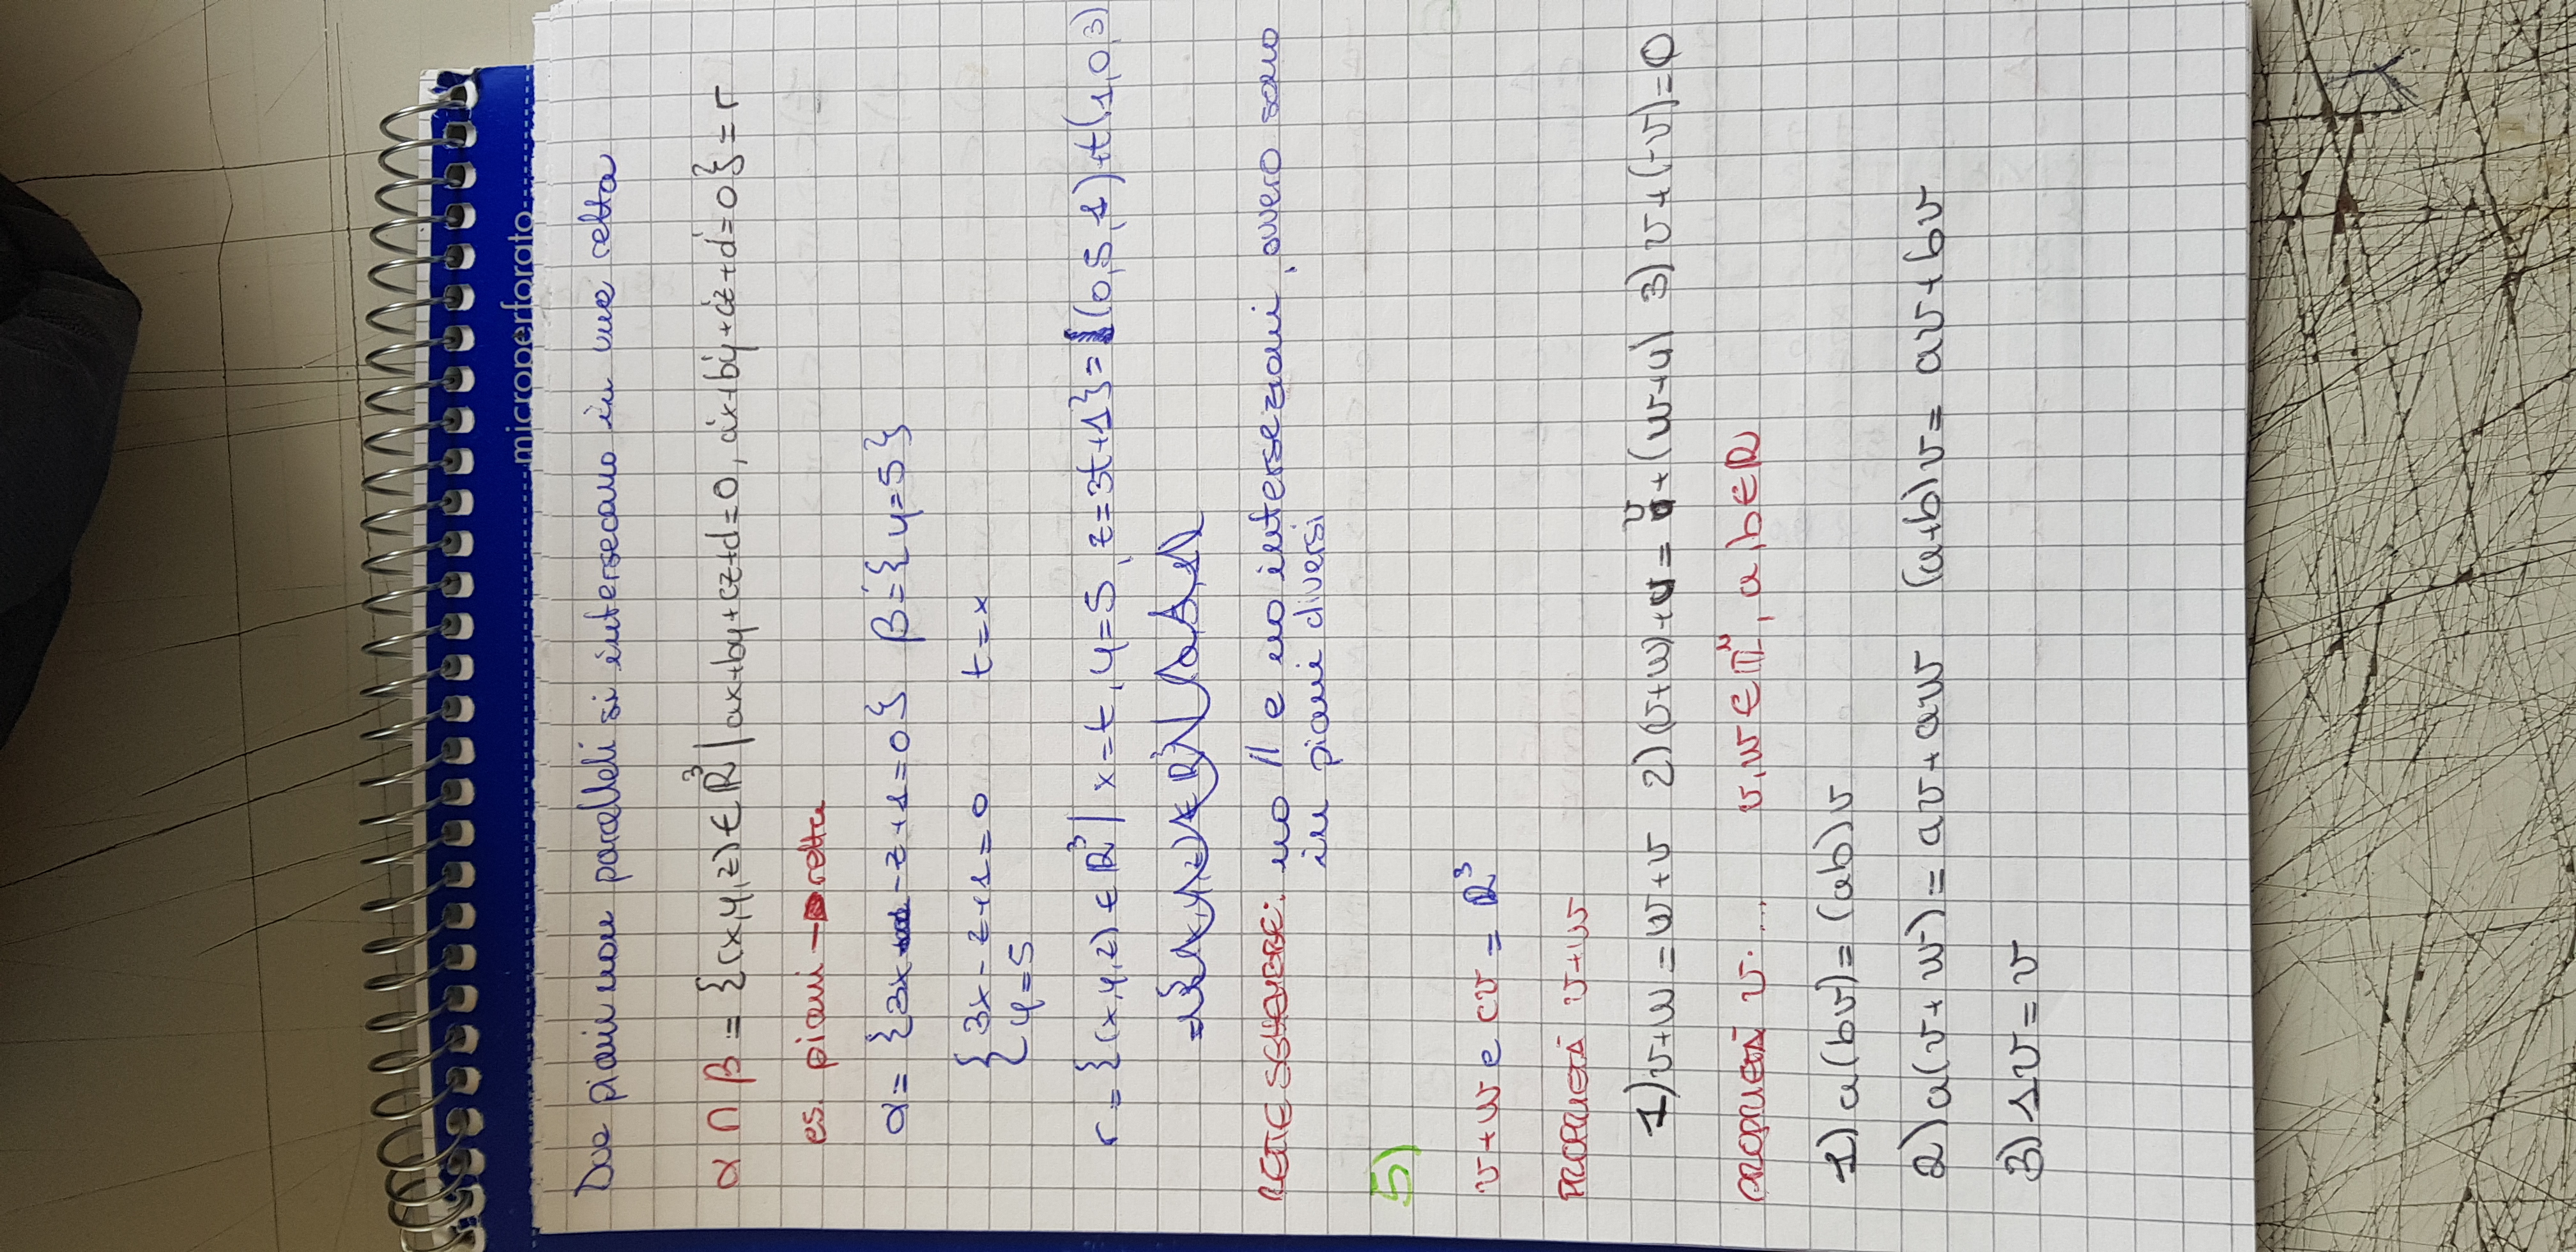 microperforato
Due piani non paralleli si intersecano in una retta
α ∩ β = {(x,y,z) ∈ ℝ³ | ax+by+cz+d=0, a'x+b'y+c'z+d'=0} = r
es. piani → retta
α = {3x -z+1=0} β = {y=5}
{ 3x-z+1=0 t=x
y=5
r = {(x,y,z) ∈ ℝ³ | x=t, y=5, z=3t+1} = (0,5,1)+t(1,0,3)
RETTE SGHEMBE: no // e no intersezioni, ovvero sono
in piani diversi
5)
v+w e cv = ℝ³
PROPRIETÀ v+w
1) v+w = w+v 2) (v+w)+u = v+(w+u) 3) v+(-v)=0
PROPRIETÀ v· ... v,w ∈ ℝⁿ, a,b ∈ ℝ
1) a(bv) = (ab)v
2) a(v+w) = av+aw (a+b)v = av+bv
3) 1v = v